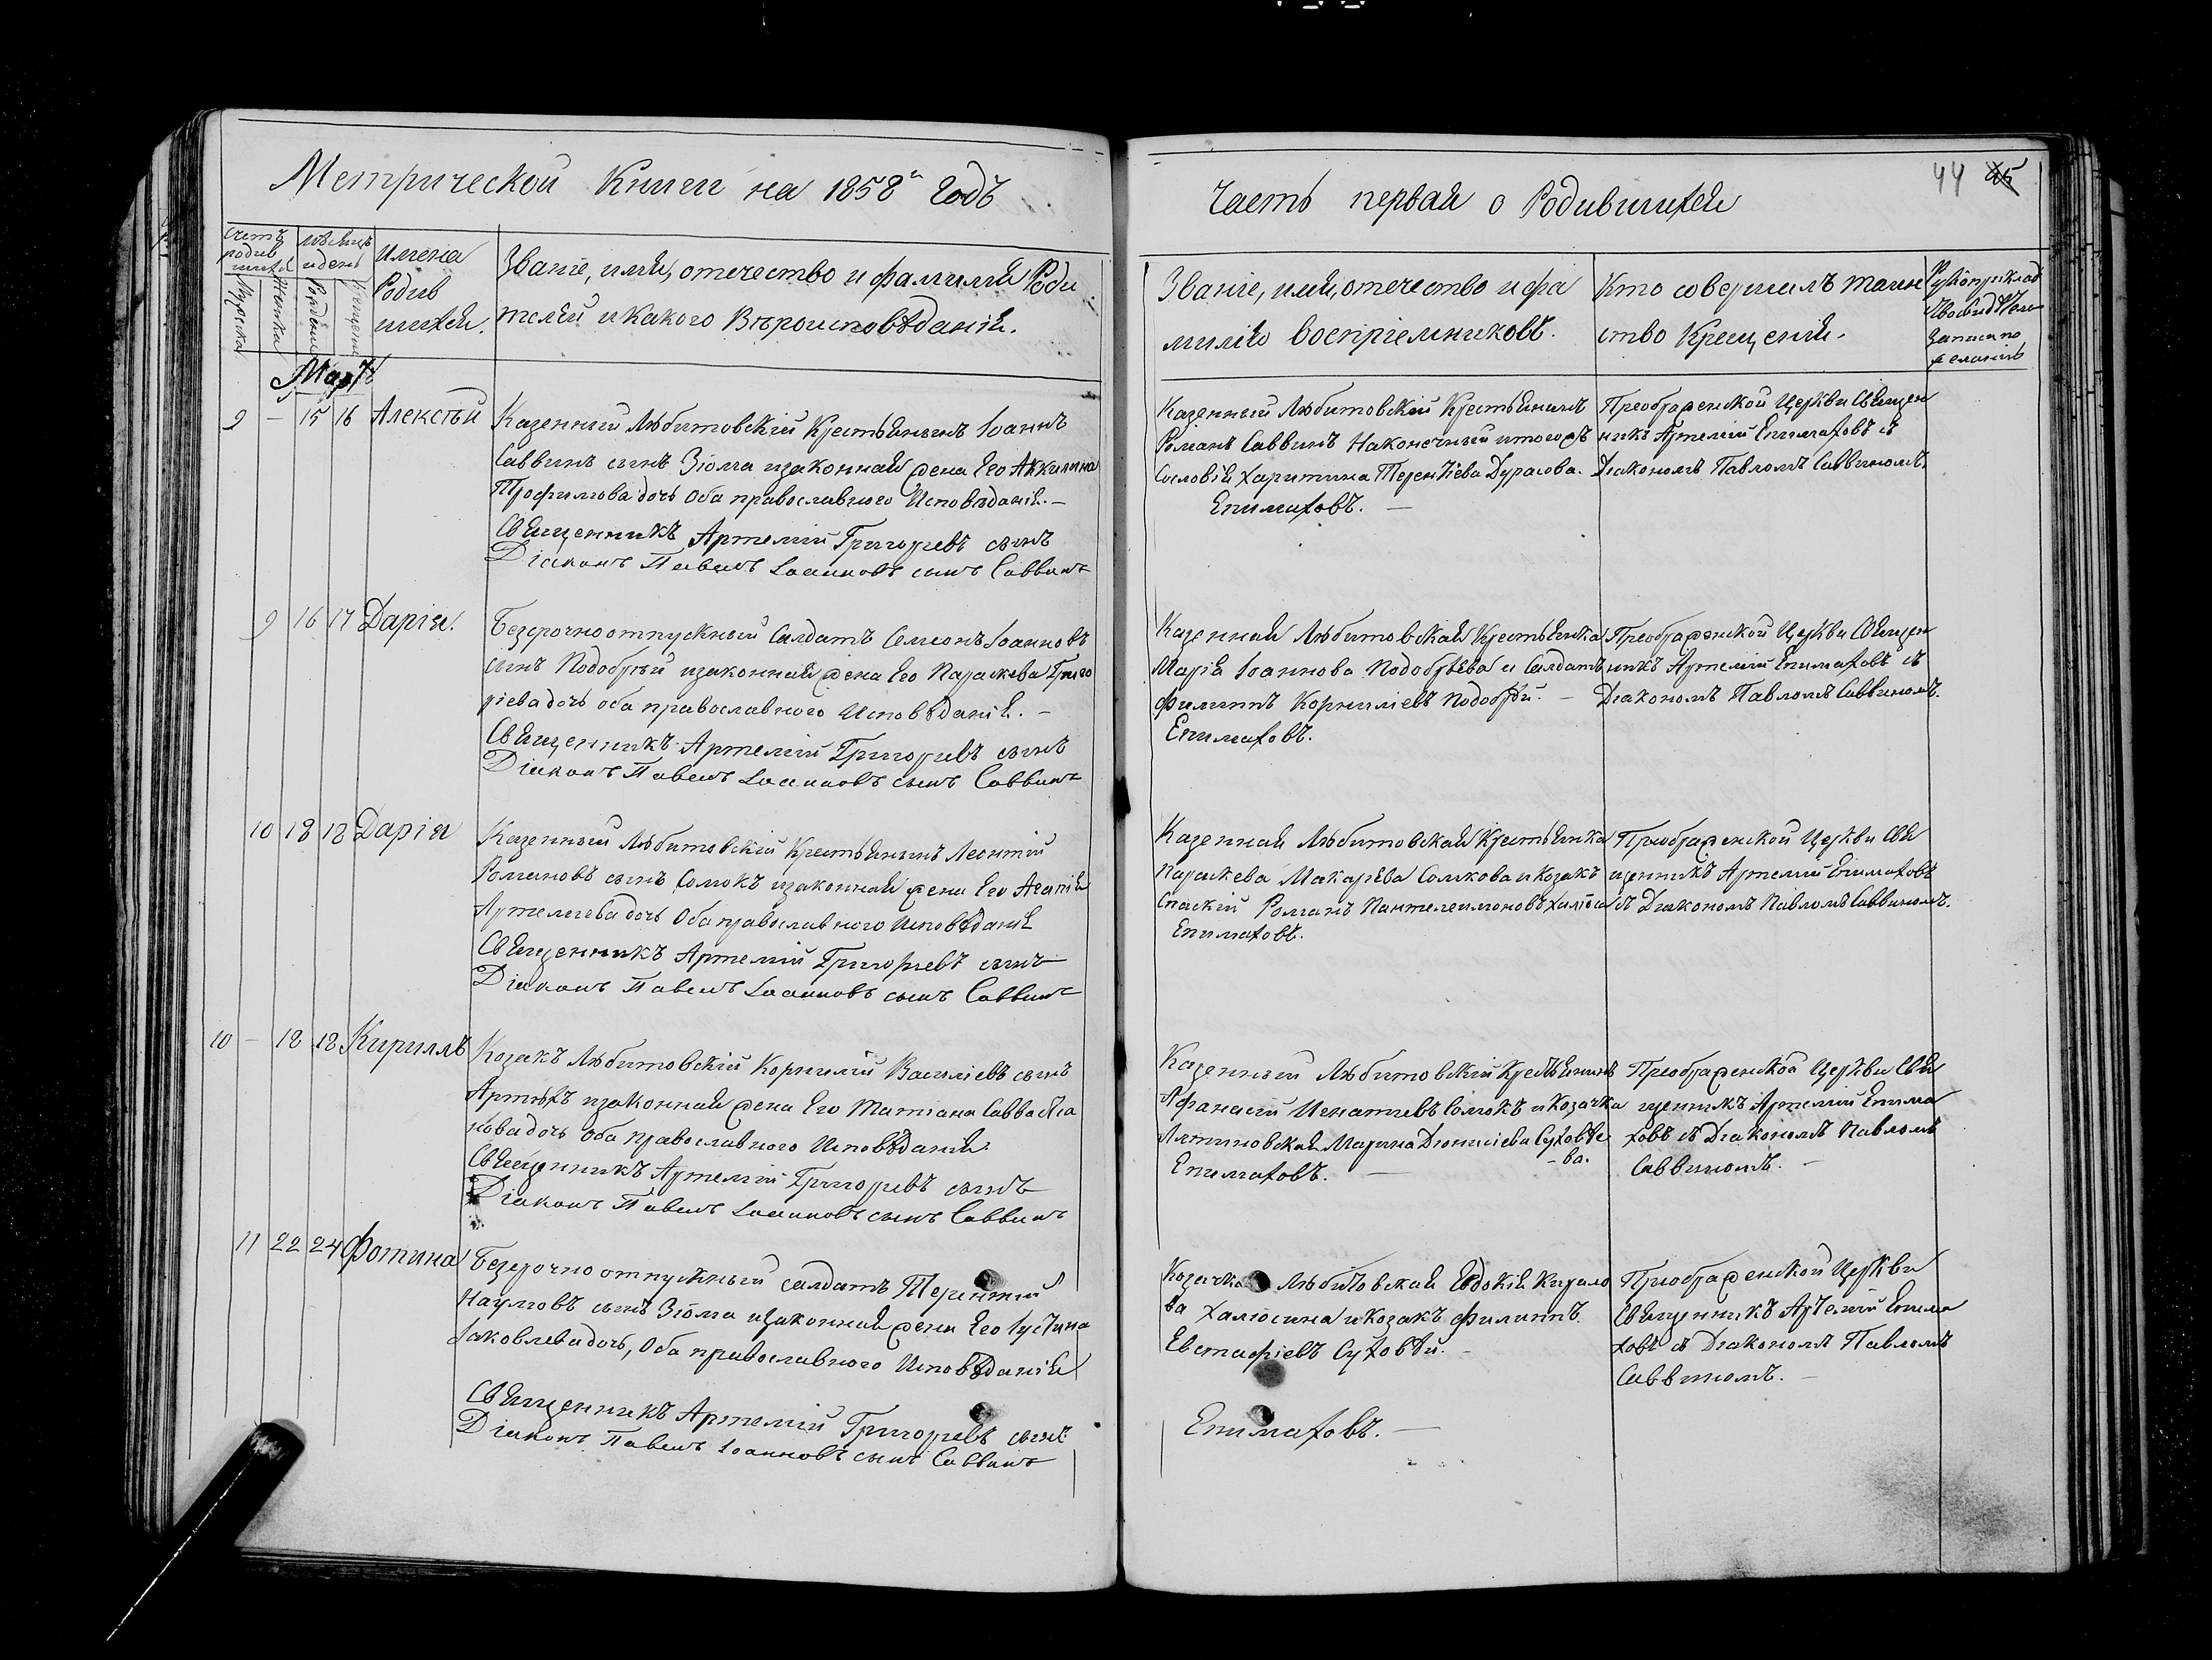 Метрической Книги на 1858й Годъ
Часть первая о Родившихся
44 45
Счетъ родив шихся
Мужска
Женска
мѣсяцъ и день
Рожденія
Крещенія
Имена
Родив
шихся.
Званіе, имя, отечество и фамилія Роди
телей и какого Вѣроисповѣданія.
Званіе, имя, отечество и фа
милію воспріемниковъ.
Кто совершилъ таин
ство Крещенія.
Рукоприклад
ство свидѣтелей
записи по
желанію
Мартъ
9 – 15 16 Алексѣй
Казенный Любитовскій Крестьянинъ Іоаннъ
Саввинъ сынъ Зюма и законная жена Его Аккилина
Трофимова дочь Оба православного Исповѣданія. –
Священникъ Артемій Григорьевъ сынъ
Діаконъ Павелъ Іоанновъ сынъ Саввинъ
Казенный Любитовскій Крестьянинъ
Романъ Саввинъ Наконечный и того жъ
Сословія Харитина Терентіева Дурасова.
Епимаховъ. –
Преображенской Церкви Священ
никъ Артемій Епимаховъ съ
Діакономъ Павломъ Саввиномъ.
9 16 17 Дарія.
Безсрочноотпускный Салдатъ Симеонъ Іоанновъ
сынъ Подобрѣй и законная жена Его Параскева Григо
ріева дочь оба православного Исповѣданія. –
Священникъ Артемій Григорьевъ сынъ
Діаконъ Павелъ Іоанновъ сынъ Саввинъ
Казенная Любитовская Крестьянка
Марія Іоаннова Подобрѣева и Салдатъ
Филиппъ Корниліевъ Подобрѣй. –
Епимаховъ.
Преображенской Церкви Священ
никъ Артемій Епимаховъ съ
Діакономъ Павломъ Саввиномъ.
10 18 18 Дарія
Казенный Любитовскій Крестьянинъ Леонтій
Романовъ сынъ Сомокъ и законная жена Его Агапія
Артеміева дочь Оба православного Исповѣданія
Священникъ Артемій Григорьевъ сынъ
Діаконъ Павелъ Іоанновъ сынъ Саввинъ
Казенная Любитовская Крестьянка
Параскева Макарѣва Сомкова и Козакъ
Спаскій Романъ Пантелеимоновъ
Епимаховъ.
Преображенской Церкви Свя
щенникъ Артемій Епимаховъ
съ Діакономъ Павломъ Саввиномъ.
10 – 18 18 Кириллъ
Козакъ Любитовскій Корнилій Василіевъ сынъ
Артюхъ и законная жена Его Татіана Саввастіа
нова дочь Оба православного Исповѣданія.
Священникъ Артемій Григорьевъ сынъ
Діаконъ Павелъ Іоанновъ сынъ Саввинъ
Казенный Любитовскій Крестьянинъ
Афанасій Игнатіевъ Сомокъ и Козачка
Лятиновская Марина Діонисіева Суховѣе
– ва.
Епимаховъ. –
Преображенской Церкви Свя
щенникъ Артемій Епима
ховъ съ Діакономъ Павломъ
Саввиномъ. –
11 22 24 Фотина
Безсрочно отпускный салдатъ Терентій
Наумовъ сынъ Зюма и законная жена Его Іустина
Іаковлева дочь, Оба православного Исповѣданія
Священникъ Артемій Григорьевъ сынъ
Діаконъ Павелъ Іоанновъ сынъ Саввинъ
Козачка Любитовская Евдокія Кирило
ва Халюсина и Козакъ Филиппъ
Евстафіевъ Суховѣй. –
Епимаховъ. –
Преображенской Церкви
Священникъ Артемій Епима
ховъ съ Діакономъ Павломъ
Саввиномъ. –